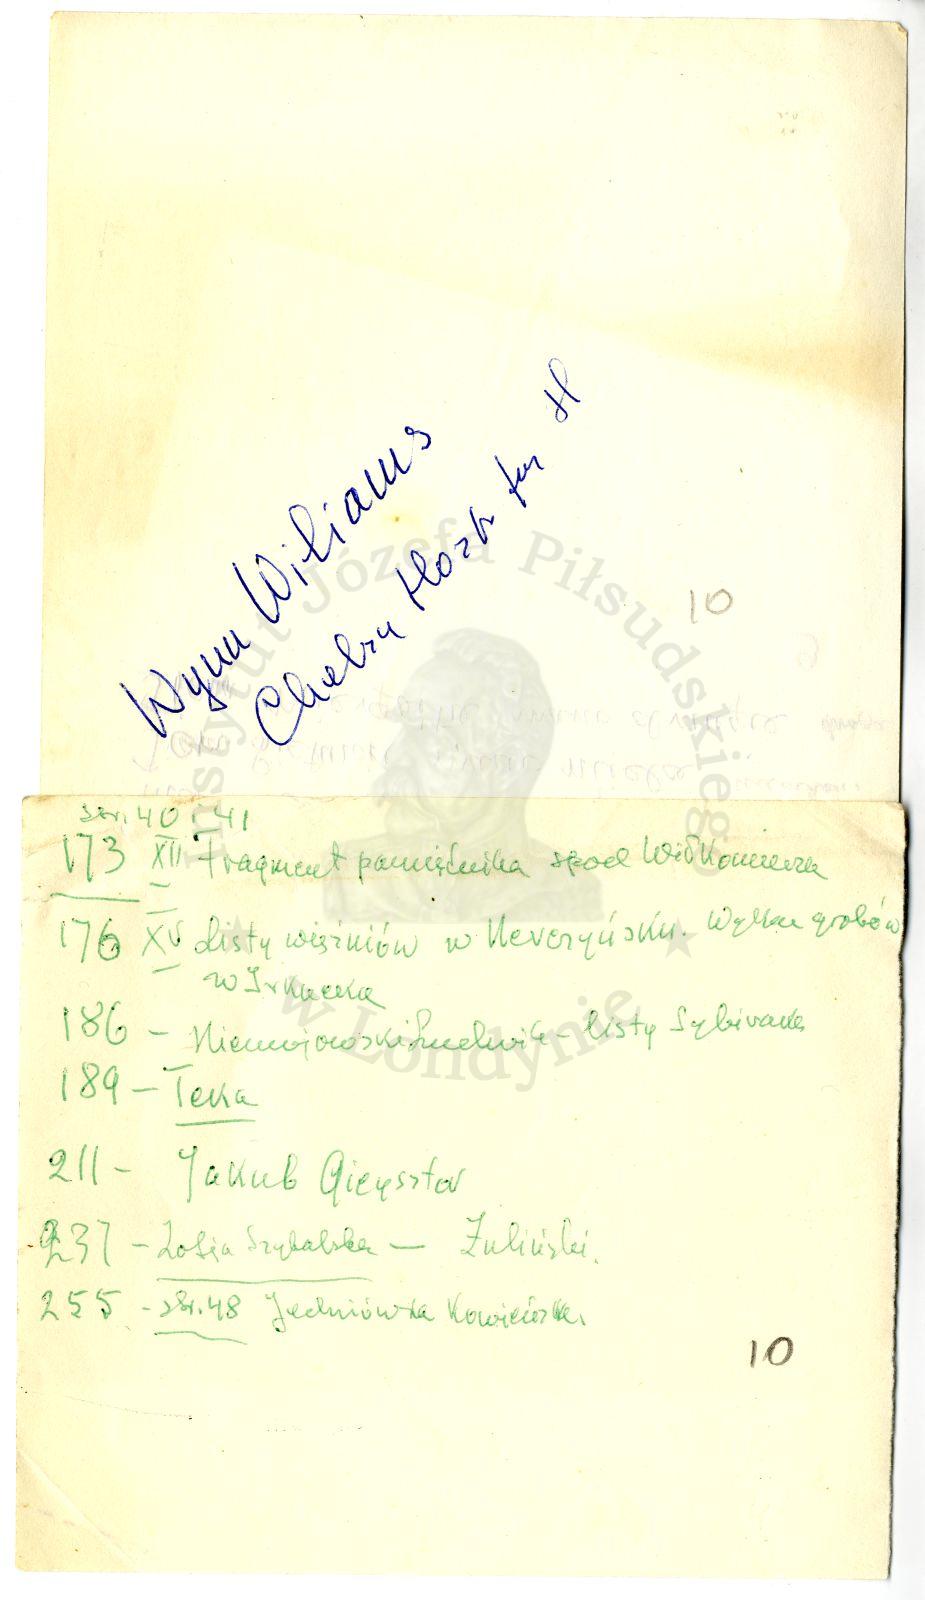 Wynn Wiliams
Chelsea
10
str. 40 i 41
173 XII Fragment pamiętnika spod Wiłkomierza
176 XV Listy więźniów w Nerczyńsku. Wykaz grobów
w Irkucku
186 - Niemojowski Ludwik - listy Sybiraka
189 - Teka
211 - Jakub Gieysztor
237 - Zofia Szybalska - Żuliński.
255 - str. 48 Jedniówka Kowieńska.
10
Instytut Józefa Piłsudskiego
w Londynie